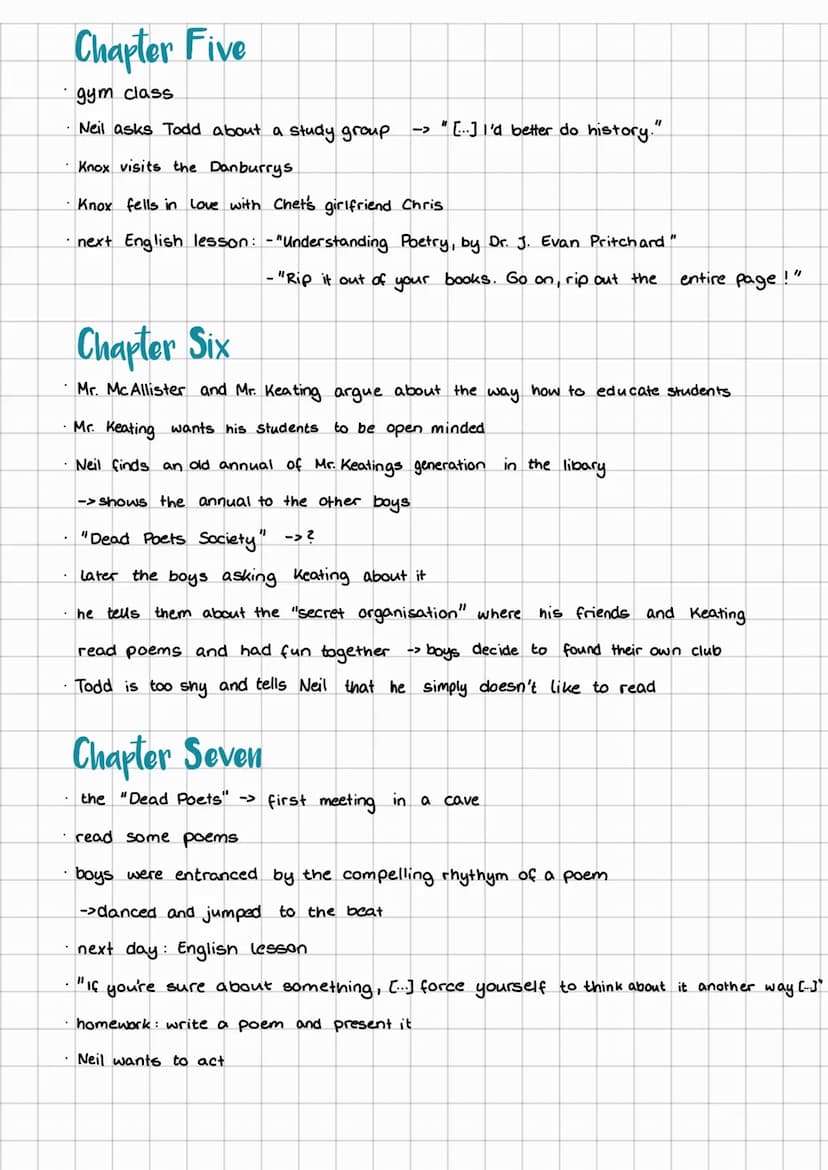 Chapter Five
· gym class
· Neil asks Todd about a study group -> "[...] I'd better do history."
· Knox visits the Danburrys
· Knox fells in love with Chet's girlfriend Chris
· next English lesson: - "Understanding Poetry, by Dr. J. Evan Pritchard"
- "Rip it out of your books. Go on, rip out the entire page!"
Chapter Six
· Mr. McAllister and Mr. Keating argue about the way how to educate students
· Mr. Keating wants his students to be open minded
· Neil finds an old annual of Mr. Keatings generation in the libary
-> shows the annual to the other boys
· "Dead Poets Society" -> ?
· later the boys asking Keating about it
· he tells them about the "secret organisation" where his friends and Keating
read poems and had fun together -> boys decide to found their own club
· Todd is too shy and tells Neil that he simply doesn't like to read
Chapter Seven
· the "Dead Poets" -> first meeting in a cave
· read some poems
· boys were entranced by the compelling rhythym of a poem
-> danced and jumped to the beat
· next day: English lesson
· "If you're sure about something, [...] force yourself to think about it another way [...]"
· homework: write a poem and present it
· Neil wants to act